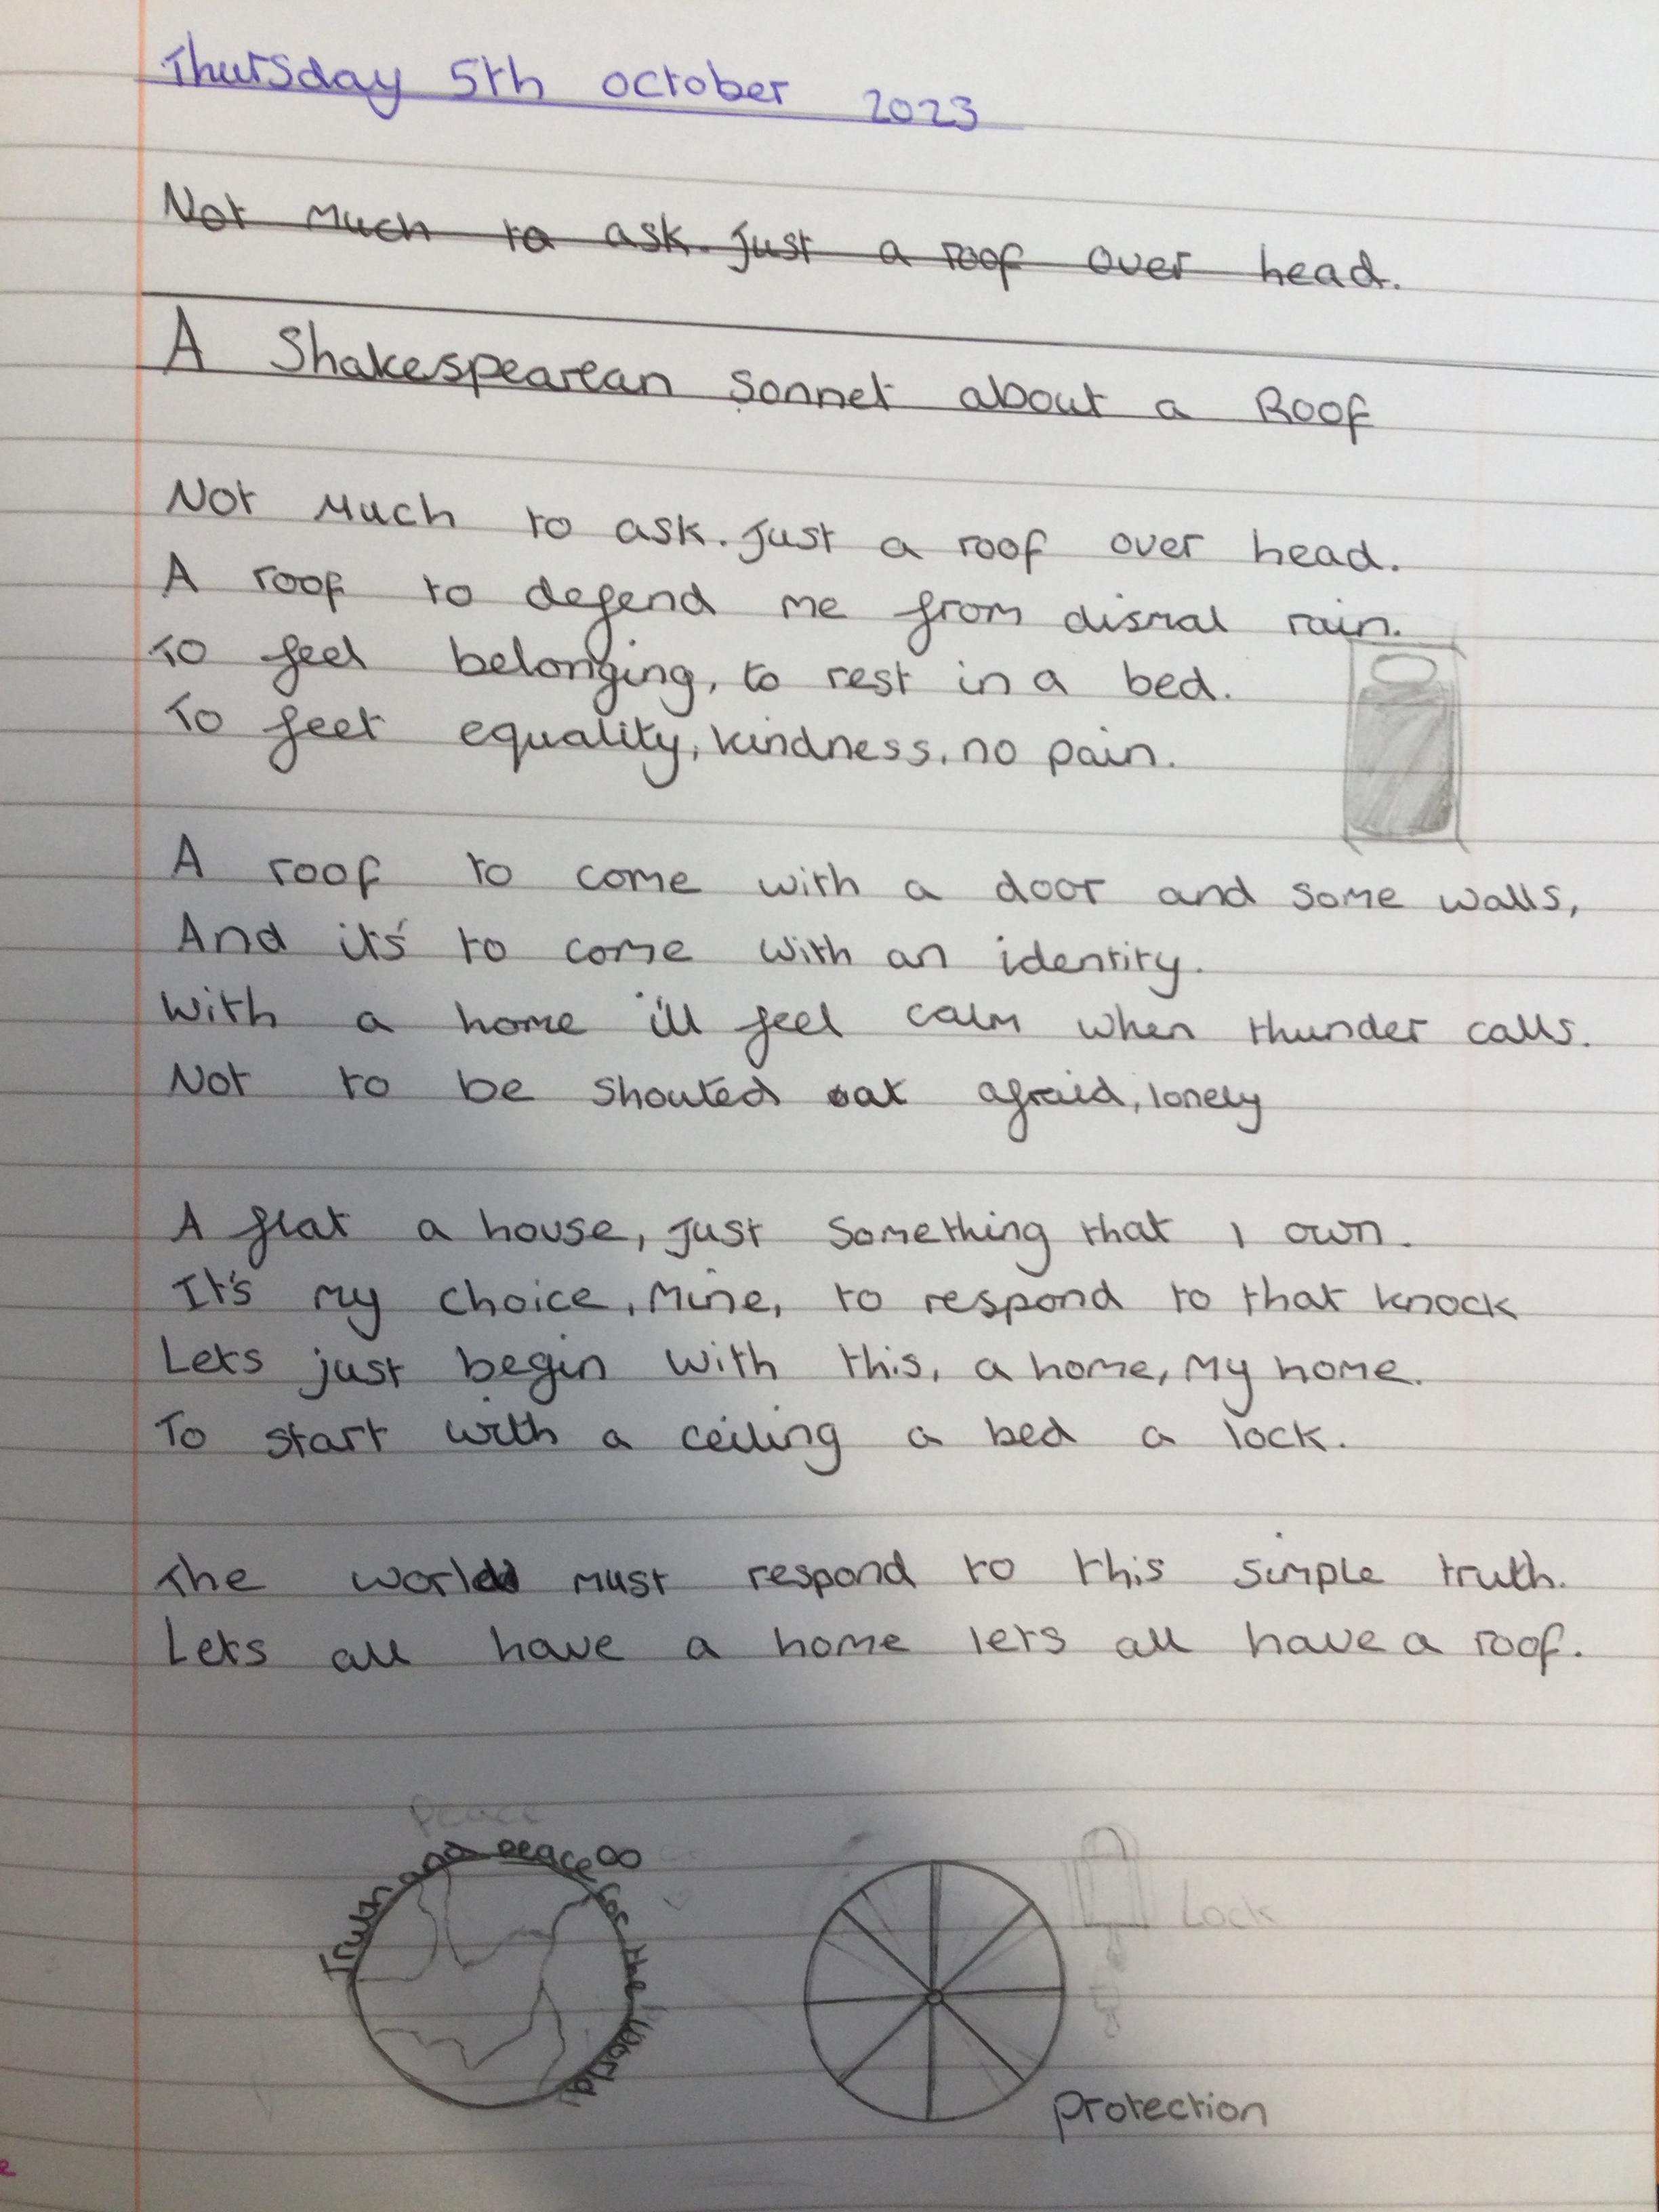 Thursday 5th october 2023
Not Much to ask. Just a roof over head.
A Shakespearean Sonnet about a Roof
Not Much to ask. Just a roof over head.
A roof to defend me from dismal rain.
To feel belonging, to rest in a bed.
To feel equality, kindness, no pain.
A roof to come with a door and some walls,
And it's to come with an identity.
With a home i'll feel calm when thunder calls.
Not to be shouted at afraid, lonely
A flat a house, Just Something that I own.
It's my choice, Mine, to respond to that knock
Lets just begin with this, a home, My home.
To start with a ceiling a bed a lock.
The world must respond to this simple truth.
Lets all have a home lets all have a roof.
Peace
Truth and peace for the World
Lock
Protection